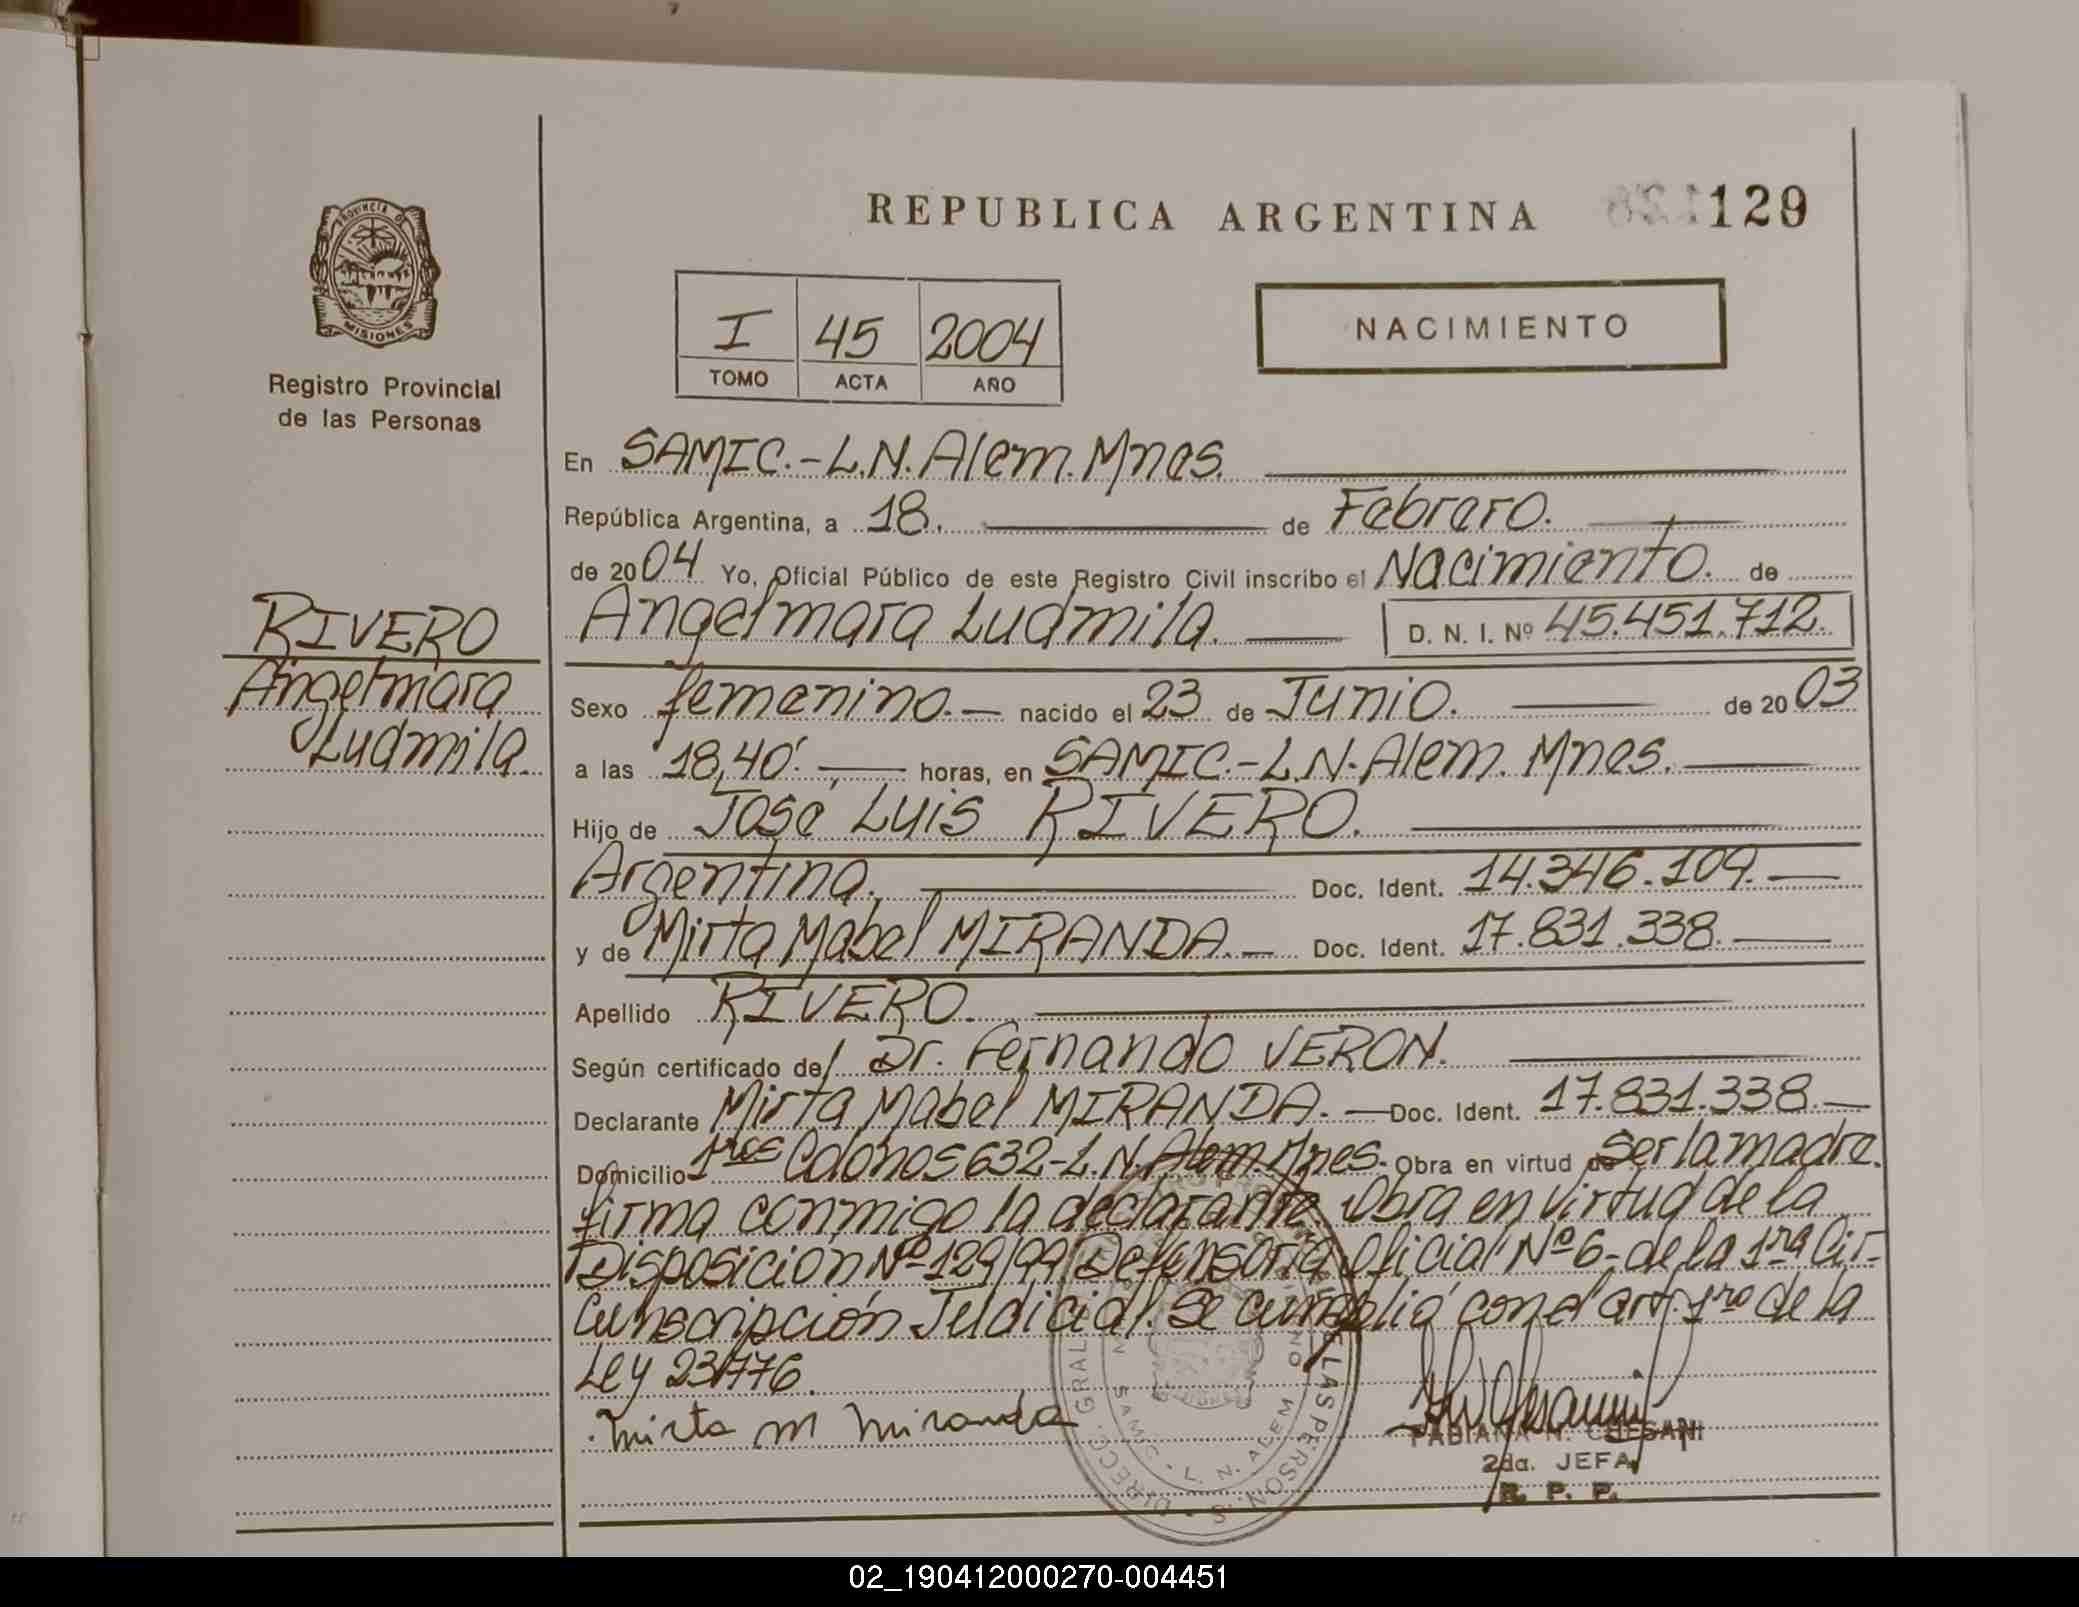 REPUBLICA ARGENTINA
129
PROVINCIA DE
MISIONES
Registro Provincial
de las Personas
I 45 2004
TOMO ACTA AÑO
NACIMIENTO
En SAMIC.-L.N.Alem.Mnes.
República Argentina, a 18. de Febrero.
de 2004 Yo, Oficial Público de este Registro Civil inscribo el Nacimiento. de
Angelmara Ludmila. D. N. I. Nº 45.451.712.
RIVERO
Angelmara
Ludmila.
Sexo femenino.- nacido el 23 de Junio. de 2003
a las 18,40'. horas, en SAMIC.-L.N.Alem. Mnes.
Hijo de Jose Luis RIVERO.
Argentina. Doc. Ident. 14.346.109.
y de Mirta Mabel MIRANDA.- Doc. Ident. 17.831.338.
Apellido RIVERO.
Según certificado del Dr. Fernando VERON.
Declarante Mirta Mabel MIRANDA.- Doc. Ident. 17.831.338.
Domicilio 1ros Colonos 632-L.N.Alem.Mnes. Obra en virtud de Ser la madre.
firma conmigo la declarante. Obra en virtud de la
Disposición Nº 129/99 Defensoria Oficial Nº 6- de la 1ra Cir-
cunscripción Judicial. Se cumplió con el art. 1ro de la
Ley 23776.
Mirta M Miranda
FABIANA N. CHESANI
2da. JEFA
R. P. P.
DIRECC. GRAL. LAS PERSONAS
SAMIC - L. N. ALEM
02_190412000270-004451